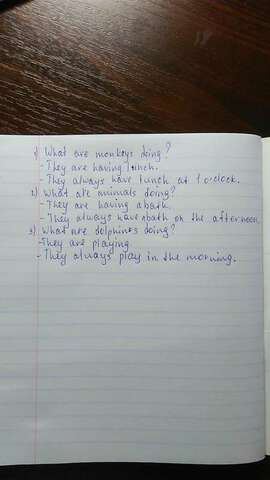 1) What are monkeys doing?
- They are having lunch.
- They always have lunch at 1 o'clock.
2) What are animals doing?
- They are having a bath.
- They always have a bath on the afternoon.
3) What are dolphins doing?
- They are playing.
- They always play in the morning.